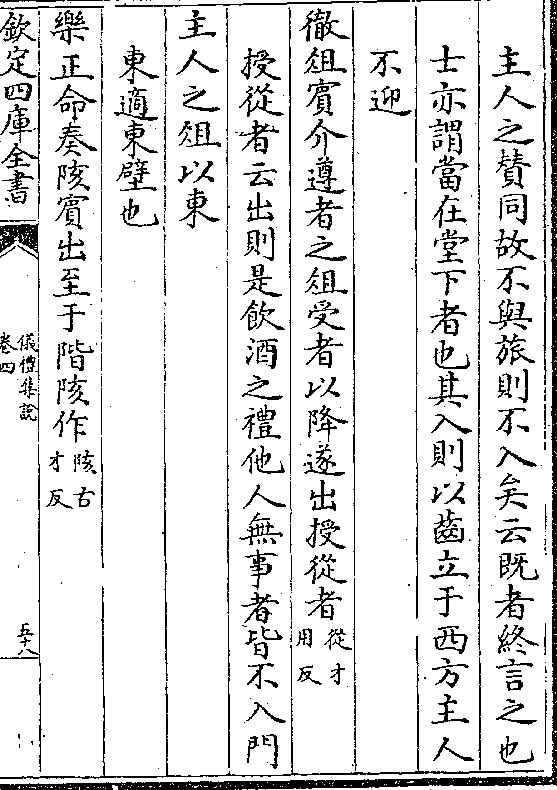 主人之贊同故不與旅則不入矣云既者終言之也
士亦謂當在堂下者也其入則以齒立于西方主人
不迎
徹俎賓介遵者之俎受者以降遂出授從者從才用反
授從者云出則是飲酒之禮他人無事者皆不入門
主人之俎以東
東適東壁也
樂正命奏陔賓出至于階陔作陔古才反
欽定四庫全書
儀禮集說
卷四
五十八